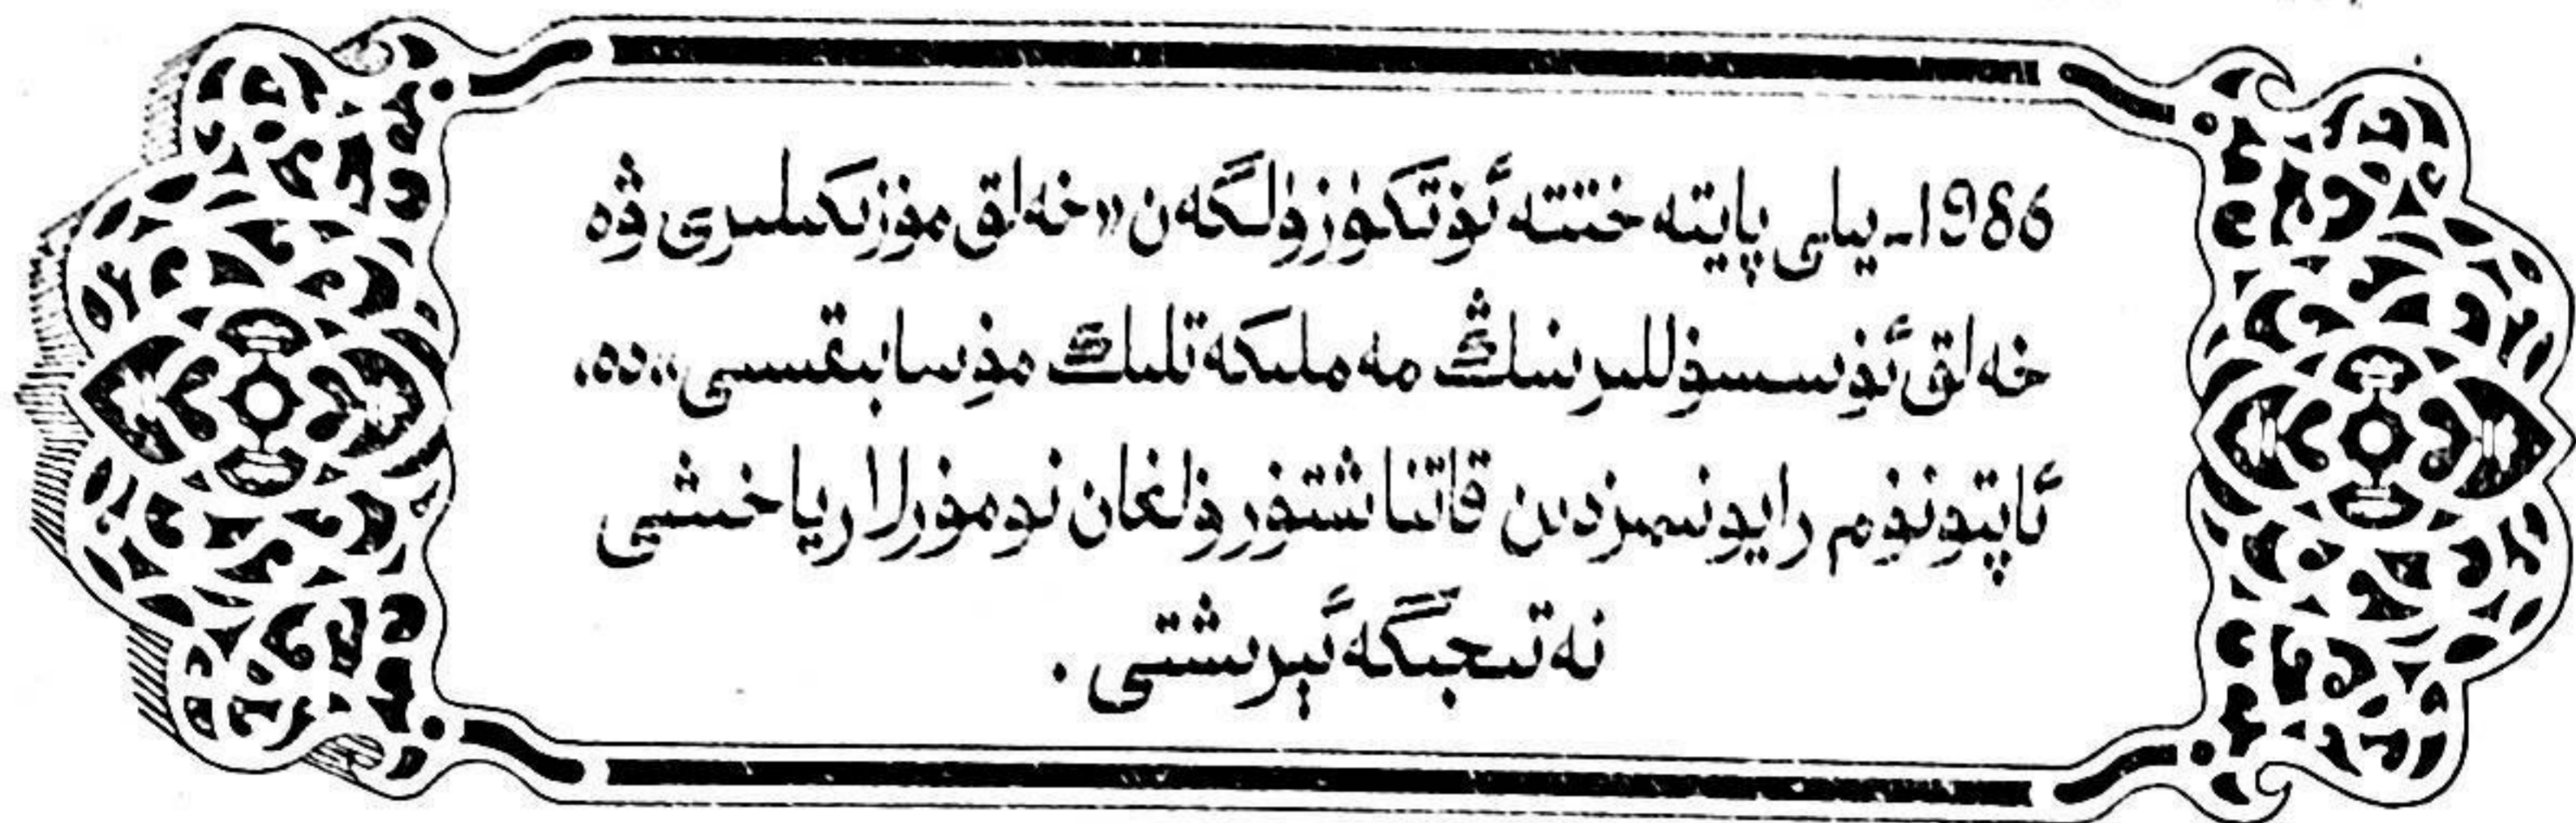 1986-يىلى پايتەختتە ئۆتكۈزۈلگەن «خەلق مۇزىكىلىرى ۋە
خەلق ئۇسسۇللىرىنىڭ مەملىكەتلىك مۇسابىقىسى»دە،
ئاپتونۇم رايونىمىزدىن قاتناشتۇرۇلغان نومۇرلار ياخشى
نەتىجىگە ئېرىشتى.